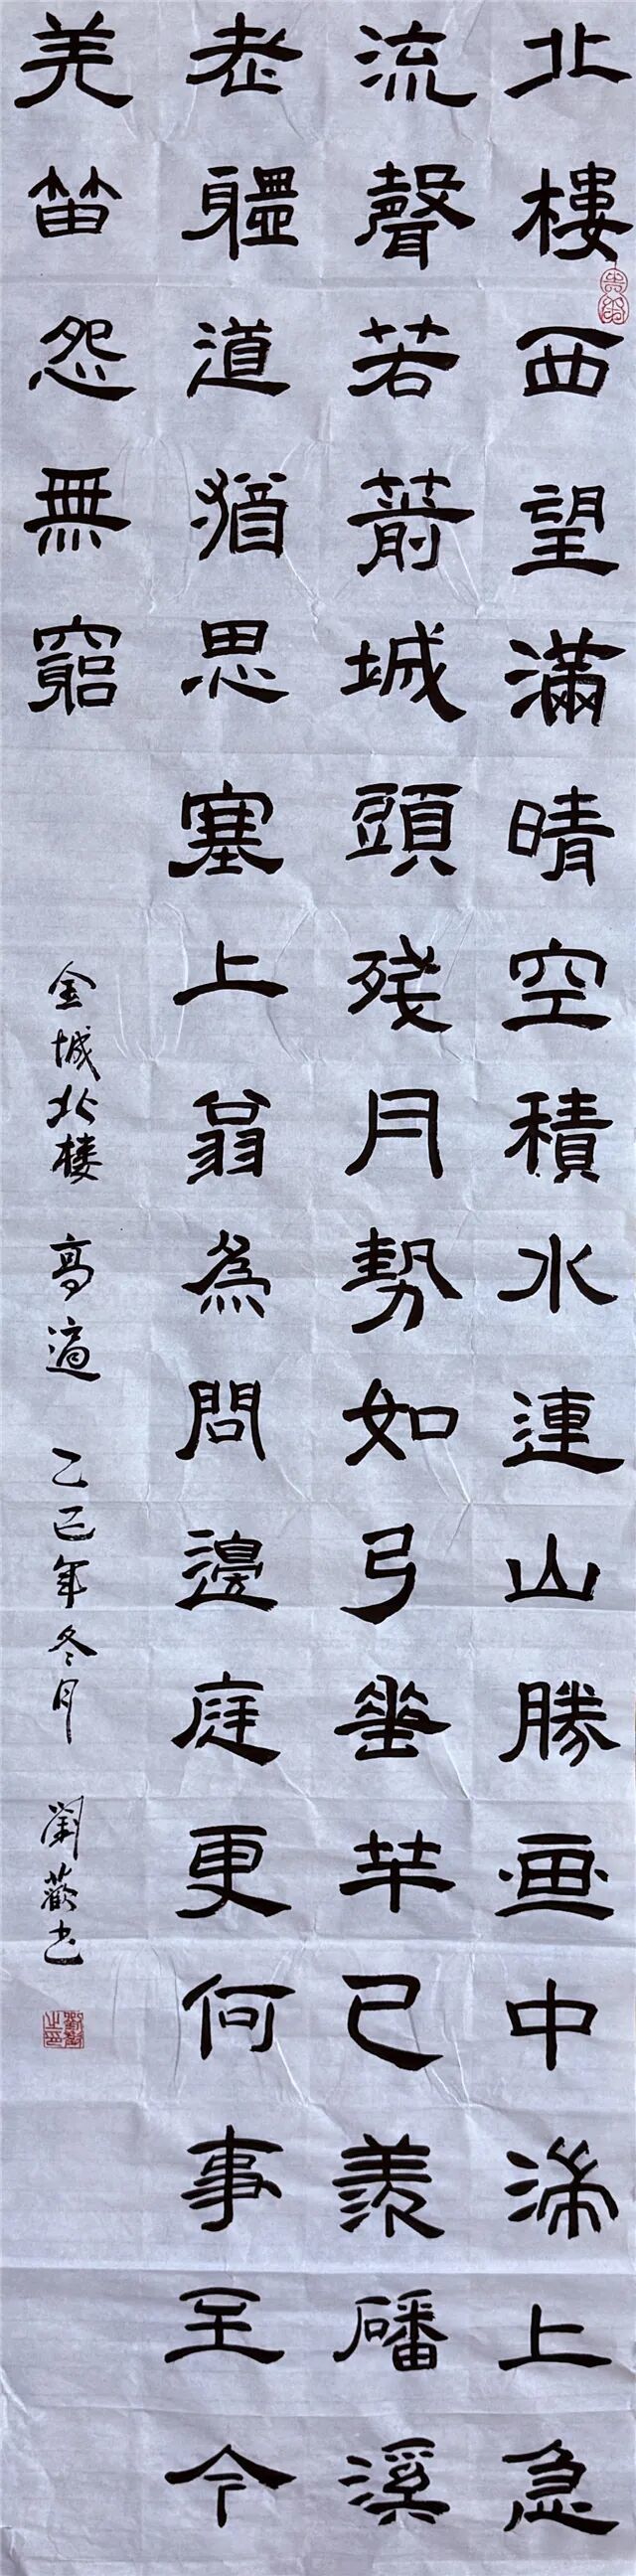 北樓西望滿晴空積水連山勝画中湍上急
流聲若箭城頭殘月勢如弓垂竿已羨磻溪
老體道猶思塞上翁為問邊庭更何事至今
羌笛怨無窮
金城北楼 高適 乙巳年冬月 劉歡书